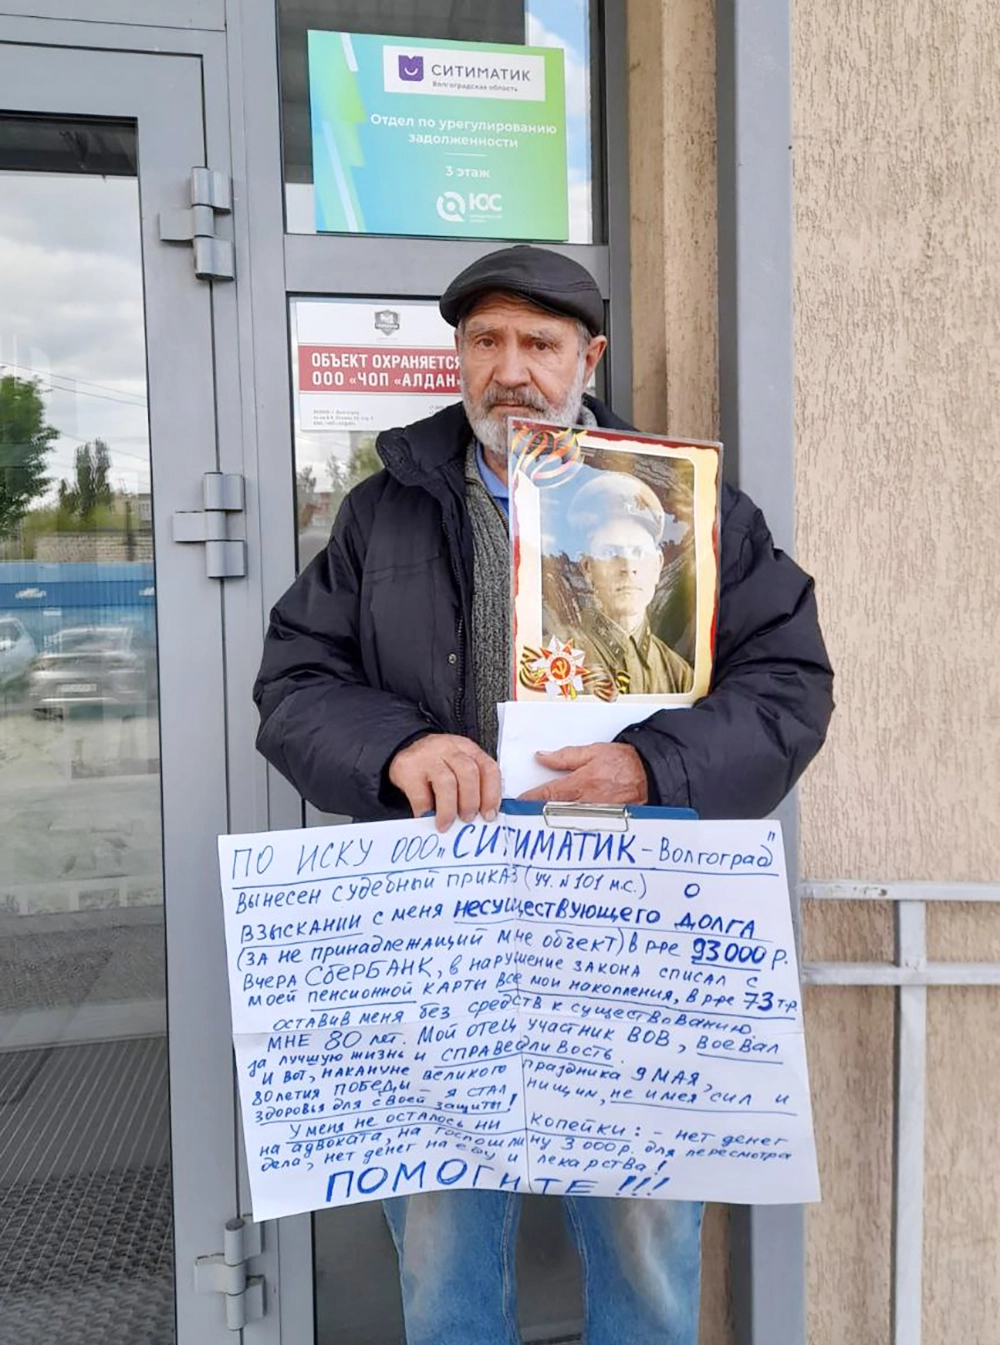 СИТИМАТИК
Волгоградская область
Отдел по урегулированию
задолженности
3 этаж
ЮС
ОБЪЕКТ ОХРАНЯЕТСЯ
ООО «ЧОП «АЛДАН»
ПО ИСКУ ООО „СИТИМАТИК – Волгоград"
ВЫНЕСЕН СУДЕБНЫЙ ПРИКАЗ (уч. N 101 м.с.) О
ВЗЫСКАНИИ с меня несуществующего ДОЛГА
(ЗА НЕ ПРИНАДЛЕЖАЩИЙ МНЕ объект) в р-ре 93000 р.
Вчера СБЕРБАНК, в нарушение закона списал с
моей пенсионной карты все мои накопления, в р-ре 73 т.р
оставив меня без средств к существованию.
МНЕ 80 лет. Мой отец участник ВОВ, воевал
за лучшую жизнь и справедливость.
И вот, накануне великого праздника 9 МАЯ,
80летия победы – я стал нищим, не имея сил и
здоровья для своей защиты!
У меня не осталось ни копейки: – нет денег
на адвоката, на госпошлину 3000р. для пересмотра
дела, нет денег на еду и лекарства!
ПОМОГИТЕ!!!